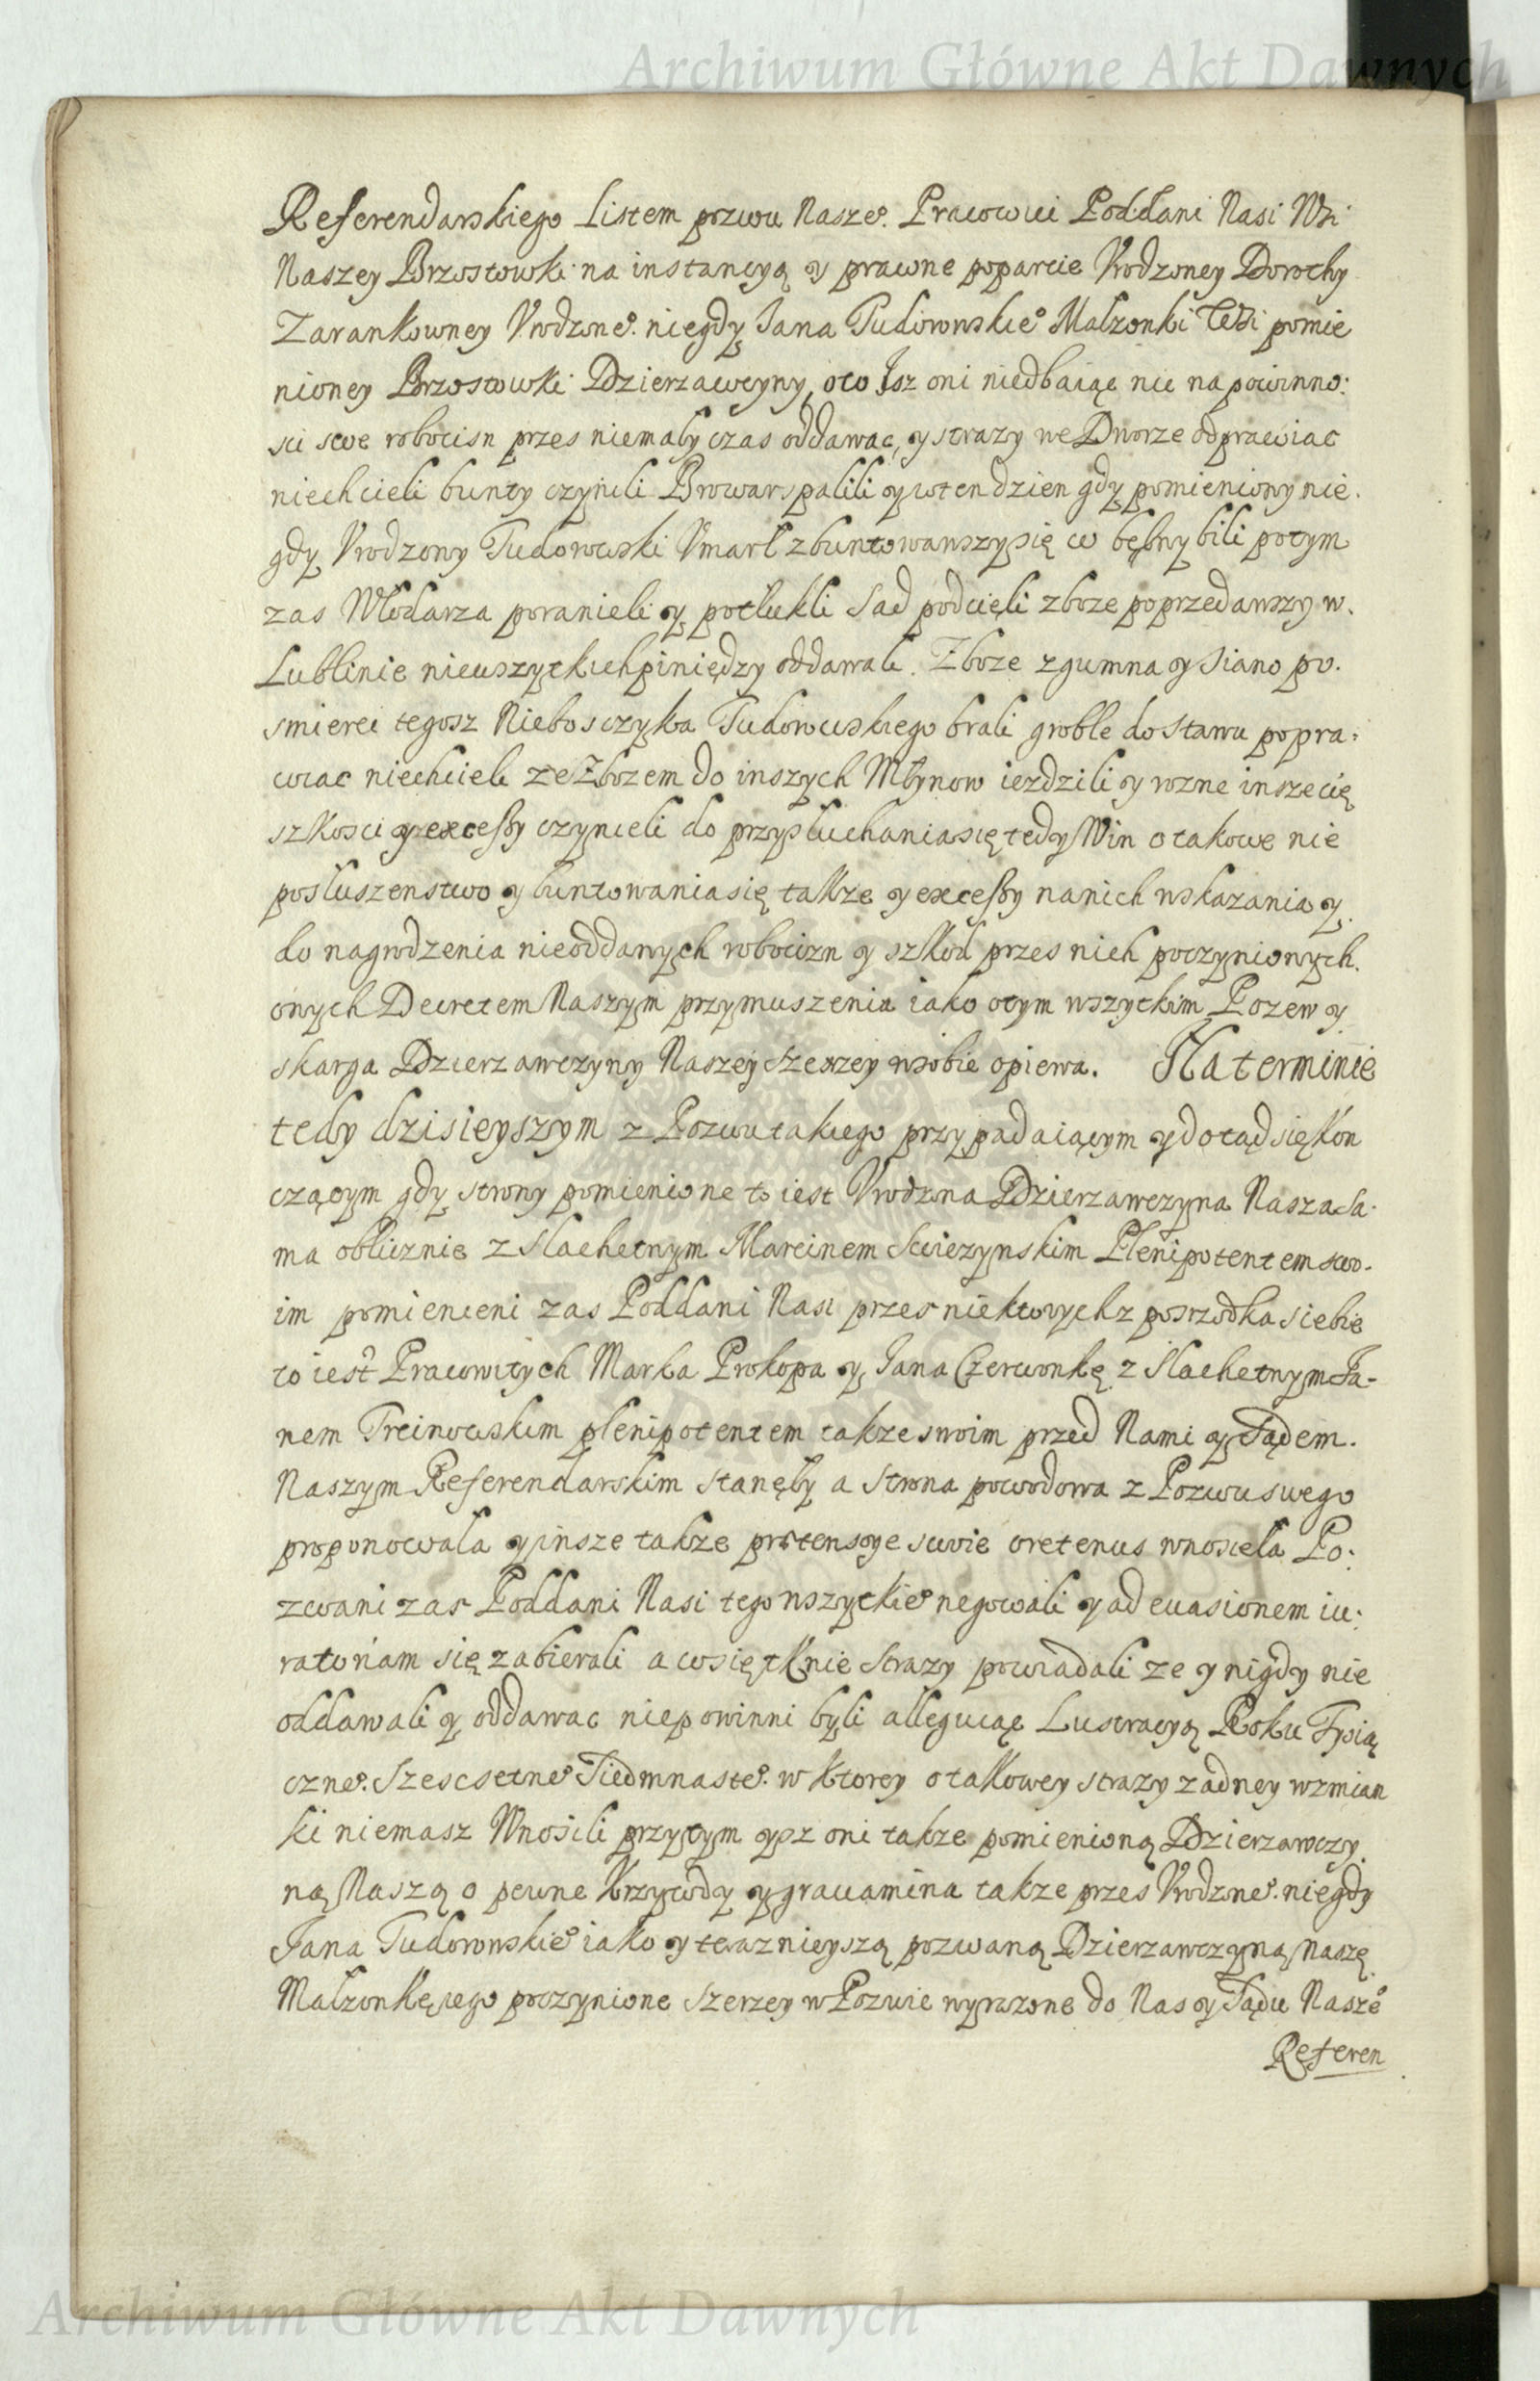 Archiwum Główne Akt Dawnych
Referendarskiego Listem pozwu Nasze°. Pracowici Poddani Nasi Wsi
Naszey Brzostowki na instancyą y prawne poparcie Vrodzoney Dorothy
Zarankowney Vrodzone°. niegdy Jana Tudorowskie° Malzonki Teyzi pomie
nioney Brzostowki Dzierzawczyny, oto Isz oni niedbaiąc nic na powinno:
sci swe robocisn przes niemały czas oddawac, y strazy we Dworze odprawiac
niechcieli bunty czynili Browar spalili y w ten dzien gdy pomieniony nie.
gdy Vrodzony Tudorowski Vmarł zbuntowawszy się w bębny bili potym
zas Włodarza poranieli y potłukli Sad podcięli zboze poprzedawszy w.
Lublinie niewszytkich piniędzy oddawali. Zboze z gumna y Siano po.
smierci tegosz Niebosczyka Tudorowskiego brali groble do Stawu popra:
wiac niechcieli ze Zbozem do inszych Młynow iezdzili y rozne insze cię
szkosci y excessy czynieli do przysłuchania się tedy Win o takowe nie
posłuszenstwo y buntowania się takze y excessy na nich wskazania y.
do nagrodzenia nieoddanych robocizn y szkod przes nich poczynionych.
onych Decretem Naszym przymuszenia iako o tym wszytkim Pozew y
skarga Dzierzawczyny Naszey szerzey w sobie opiewa. Na terminie
tedy dzisieyszym z Pozwu takiego przypadaiącym y dotąd się kon
czącym gdy strony pomienione to iest Vrodzona Dzierzawczyna Nasza Sa.
ma oblicznie z Slachetnym Marcinem Swiezynskim Plenipotentem swo.
im pomienieni zas Poddani Nasi przes niektorych z posrzodka siebie
to iest Pracowitych Marka Prokopa y Jana Czerwonkę z Slachetnym Ja-
nem Trcinowskim plenipotentem takze swoim przed Nami y Sądem.
Naszym Referendarskim Stanęły a Strona powodowa z Pozwu swego
proponowała y insze takze prętensye swoie oretenus wnosiela Po:
zwani zas Poddani Nasi tego wszytkie° negowali y ad euasionem iu:
ratoriam się zabierali a co się tknie Strazy powiadali ze y nigdy nie
oddawali y oddawac niepowinni byli alleguiąc Lustracyą Roku Tysią
czne°. Szescsetne° Siedmnaste°. w ktorey o takowey strazy zadney wzmian
ki niemasz Wnosili przytym ysz oni takze pomienioną Dzierzawczy.
ną Naszą o pewne Krzywdy y grauamina takze przes Vrodzone°. niegdy
Jana Tudorowskie° iako y teraznieyszą pozwaną Dzierzawczyną Naszę
Malzonkę iego poczynione szerzey w Pozwie wyrazone do Nas y Sądu Nasze°
Referen
Archiwum Główne Akt Dawnych